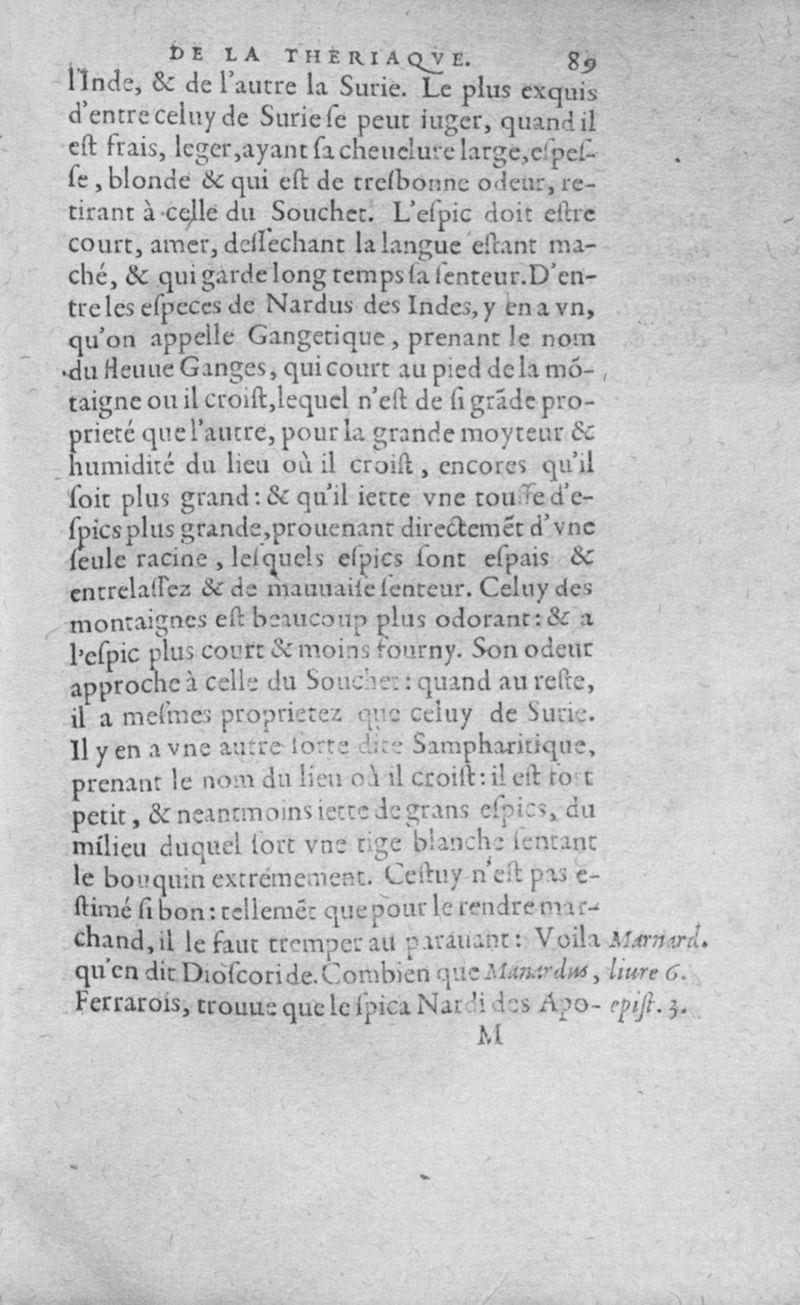 DE LA THERIAQVE. 89
l'Inde, & de l'autre la Surie. Le plus exquis
d'entre celuy de Surie ſe peut iuger, quand il
eſt frais, leger, ayant ſa cheuelure large, eſpeſ-
ſe, blonde & qui eſt de treſbonne odeur, re-
tirant à celle du Souchet. L'eſpic doit eſtre
court, amer, deſſechant la langue eſtant ma-
ché, & qui garde long temps ſa ſenteur. D'en-
tre les eſpeces de Nardus des Indes, y en a vn,
qu'on appelle Gangetique, prenant le nom
du fleuue Ganges, qui court au pied de la mõ-
taigne ou il croiſt, lequel n'eſt de ſi grãde pro-
prieté que l'autre, pour la grande moyteur &
humidité du lieu où il croiſt, encores qu'il
ſoit plus grand: & qu'il iette vne touffe d'e-
ſpics plus grande, prouenant directemẽt d'vne
ſeule racine, leſquels eſpics ſont eſpais &
entrelaſſez & de mauuaiſe ſenteur. Celuy des
montaignes eſt beaucoup plus odorant: & a
l'eſpic plus court & moins fourny. Son odeur
approche à celle du Souchet: quand au reſte,
il a meſmes proprietez que celuy de Surie.
Il y en a vne autre ſorte dite Sampharitique,
prenant le nom du lieu où il croiſt: il eſt fort
petit, & neantmoins iette de grans eſpics, du
milieu duquel ſort vne tige blanche ſentant
le bouquin extrémement. Ceſtuy n'eſt pas e-
ſtimé ſi bon: tellemẽt que pour le rendre mar-
chand, il le faut tremper au parauant: Voila Marnard.
qu'en dit Dioſcoride. Combien que Manardus, liure 6.
Ferrarois, trouue que le ſpica Nardi des Apo- epiſt. 3.
M